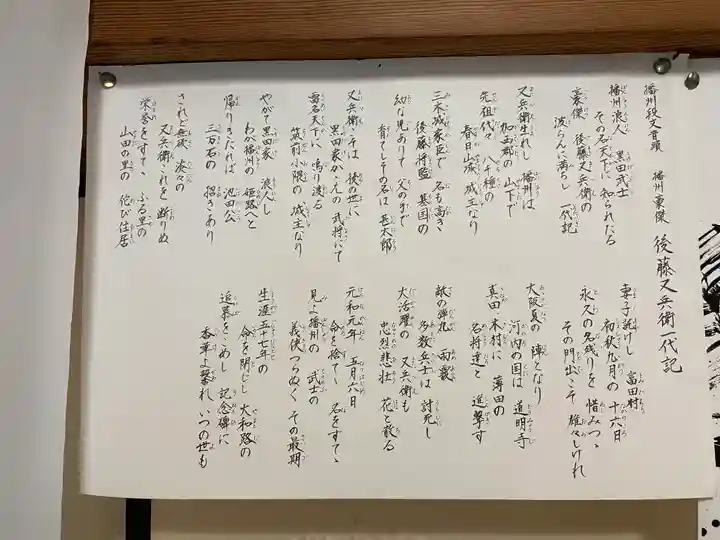 播州段文音頭　播州東傑　後藤又兵衛一代記
播州浪人　黒田武士
その名天下に　知られたる
豪傑　後藤又兵衛の
波らんに満ちし　一代記
又兵衛生れし　播州は
加西郡の　山下で
先祖代々　八千種の
春日山城　城主なり
三木城家臣で　名も高き
後藤将監　基国の
幼な児ありて　父の手で
育てしその名は　甚太郎
又兵衛こそは　後の世に
黒田家かゝえの　武将にて
雷名天下に　鳴り渡る
筑前小隈の　城主なり
やがて黒田家　浪人し
わが播州の　姫路へと
帰りきたれば　池田公
三万石の　招きあり
されど無欲　淡々の
又兵衛これを　断りぬ
栄誉をすてゝ　ふる里の
山田の里の　佗び住居
妻子託けし　富田村
初秋九月の　十六日
永久の名残りを　惜みつゝ
その門出こそ　雄々しけれ
大阪夏の　陣となり
河内の国は　道明寺
真田　木村に　薄田の
名将達と　進撃す
敵の弾丸　雨霰
多数兵士は　討死し
大活躍の　又兵衛も
忠烈悲壮　花と散る
元和元年　五月六日
命を捨て　名をすてゝ
見よ播州の　武士の
義侠つらぬく　その最期
生涯五十七年の
命を閉じし　大和路の
追慕をこめし　記念碑に
香華よ馨れ　いつの世も